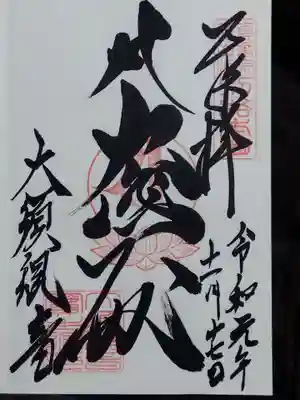 奉拝
令和元年
十一月十七日
大悲殿
大須観音